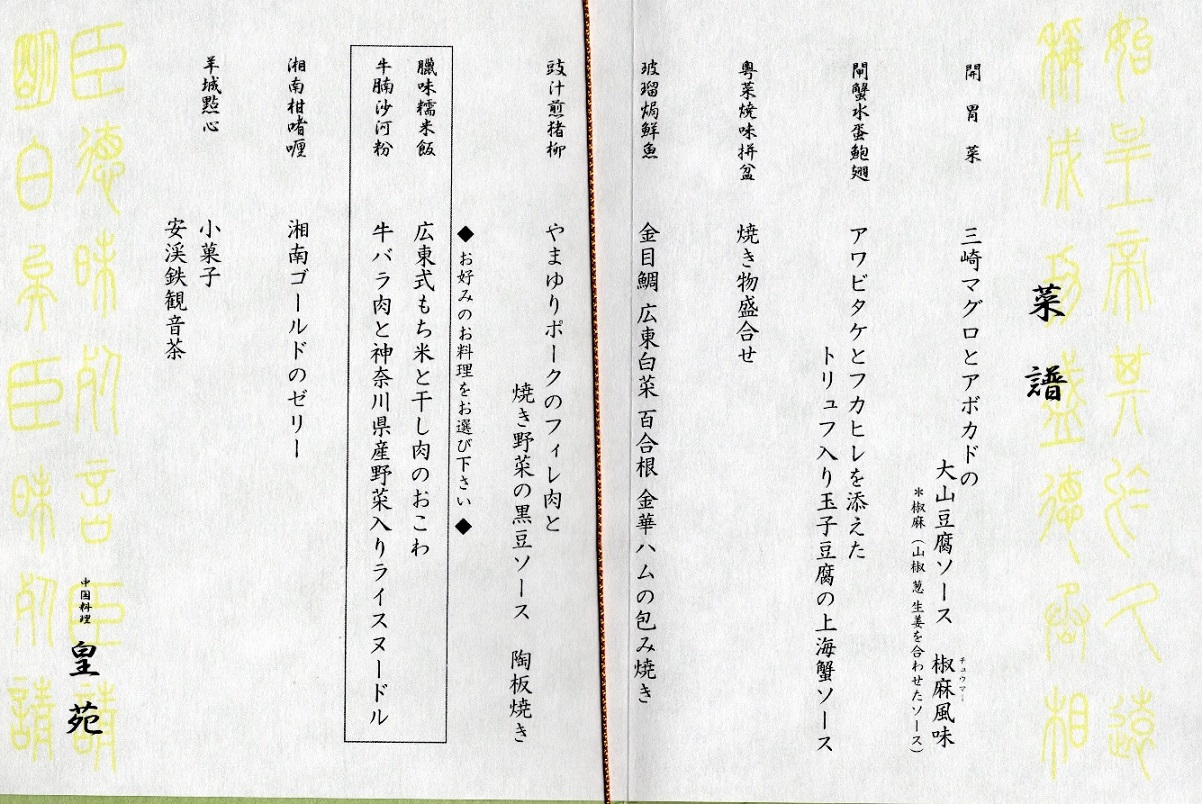 菜譜
開胃菜
三崎マグロとアボカドの
大山豆腐ソース 椒麻風味
チュウマー
＊椒麻（山椒 葱 生姜を合わせたソース）
閘蟹水蛋鮑翅
アワビタケとフカヒレを添えた
トリュフ入り玉子豆腐の上海蟹ソース
粤菜焼味拼盆
焼き物盛合せ
玻瑠焗鮮魚
金目鯛 広東白菜 百合根 金華ハムの包み焼き
豉汁煎猪柳
やまゆりポークのフィレ肉と
焼き野菜の黒豆ソース 陶板焼き
◆お好みのお料理をお選び下さい◆
臘味糯米飯
広東式もち米と干し肉のおこわ
牛腩沙河粉
牛バラ肉と神奈川県産野菜入りライスヌードル
湘南柑啫喱
湘南ゴールドのゼリー
羊城點心
小菓子
安渓鉄観音茶
中国料理
皇苑